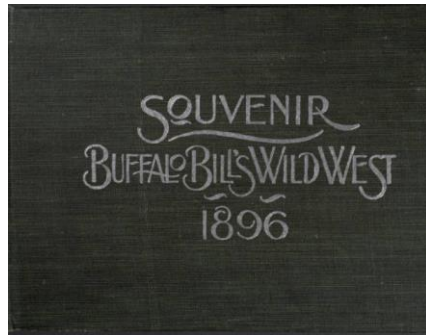 SOUVENIR
BUFFALO BILL'S WILD WEST
1896